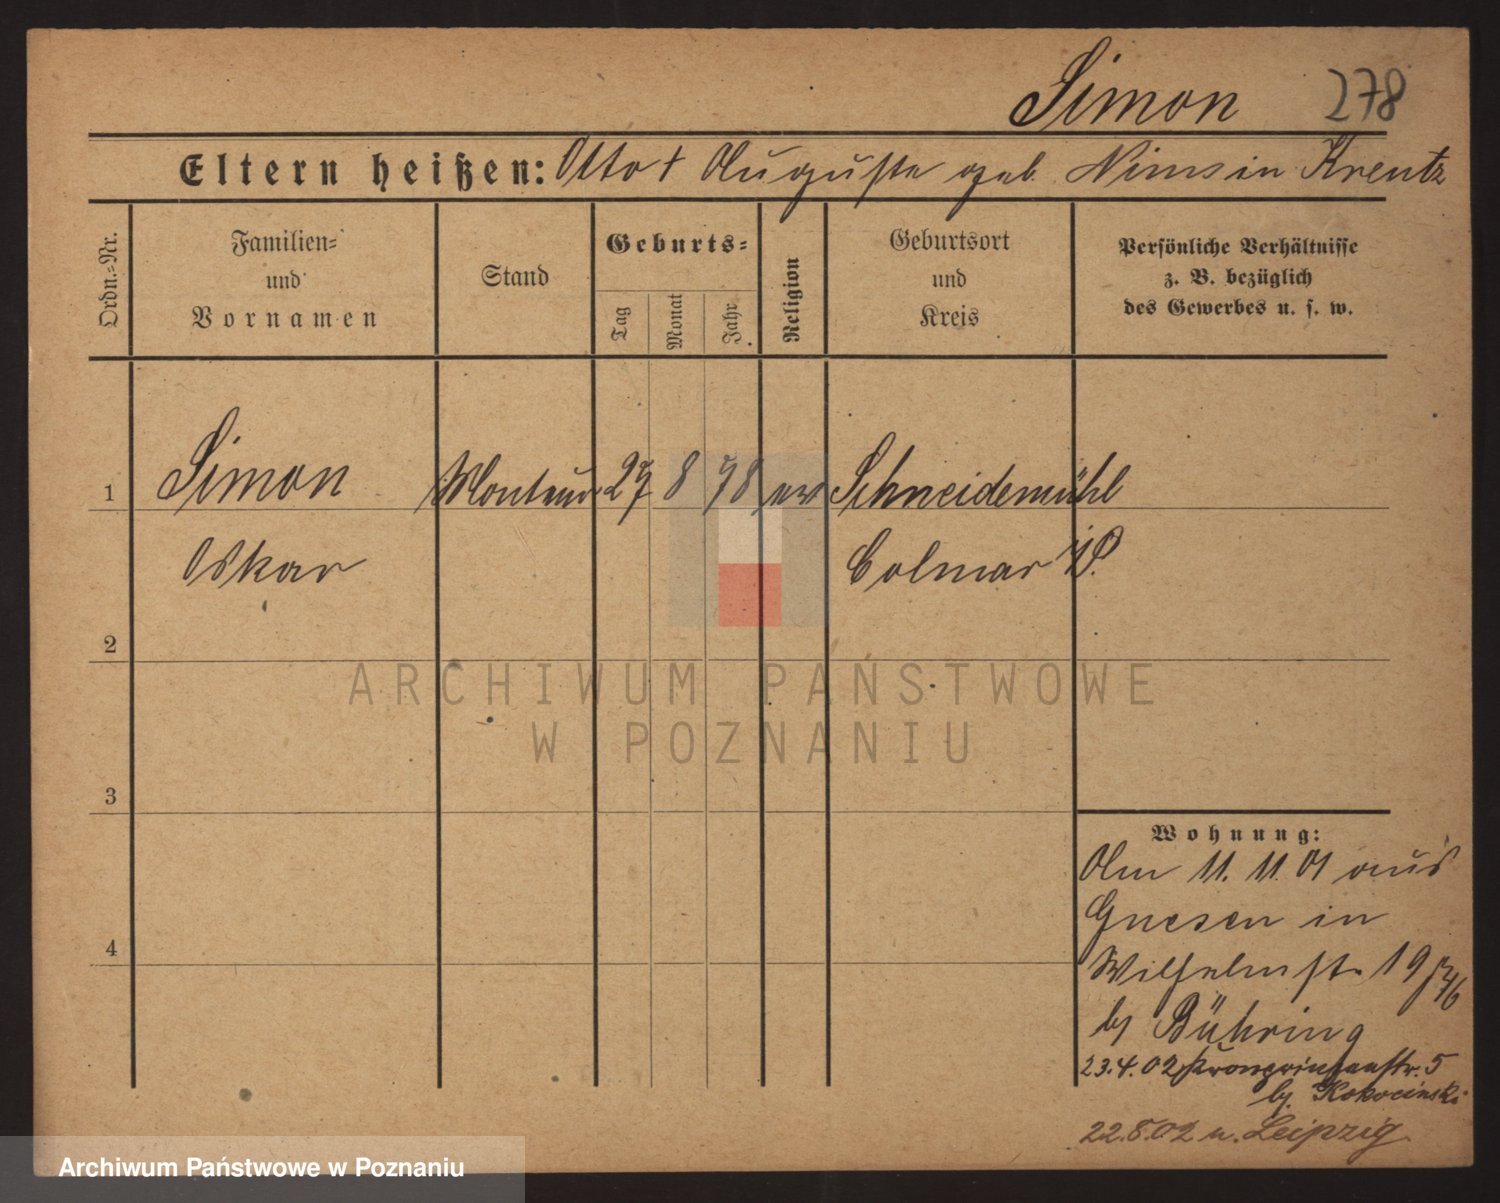 Simon 278
Eltern heißen: Otto + Auguste geb. Nims in Kreutz
Ordn.=Nr.
Familien=
und
Vornamen
Stand
Geburts=
Tag
Monat
Jahr
Religion
Geburtsort
und
Kreis
Persönliche Verhältnisse
z. B. bezüglich
des Gewerbes u. s. w.
1 Simon Monteur 27 8 78 ev Schneidemühl
Oskar Colmar i/P.
2
3
4
Wohnung:
Am 11. 11. 01 aus
Gnesen in
Wilhelmstr. 19
b/ Bühring
23.4.02 Kronprinzenstr. 5
b/. Kokocinski
22.8.02 n. Leipzig.
ARCHIWUM PAŃSTWOWE
W POZNANIU
Archiwum Państwowe w Poznaniu